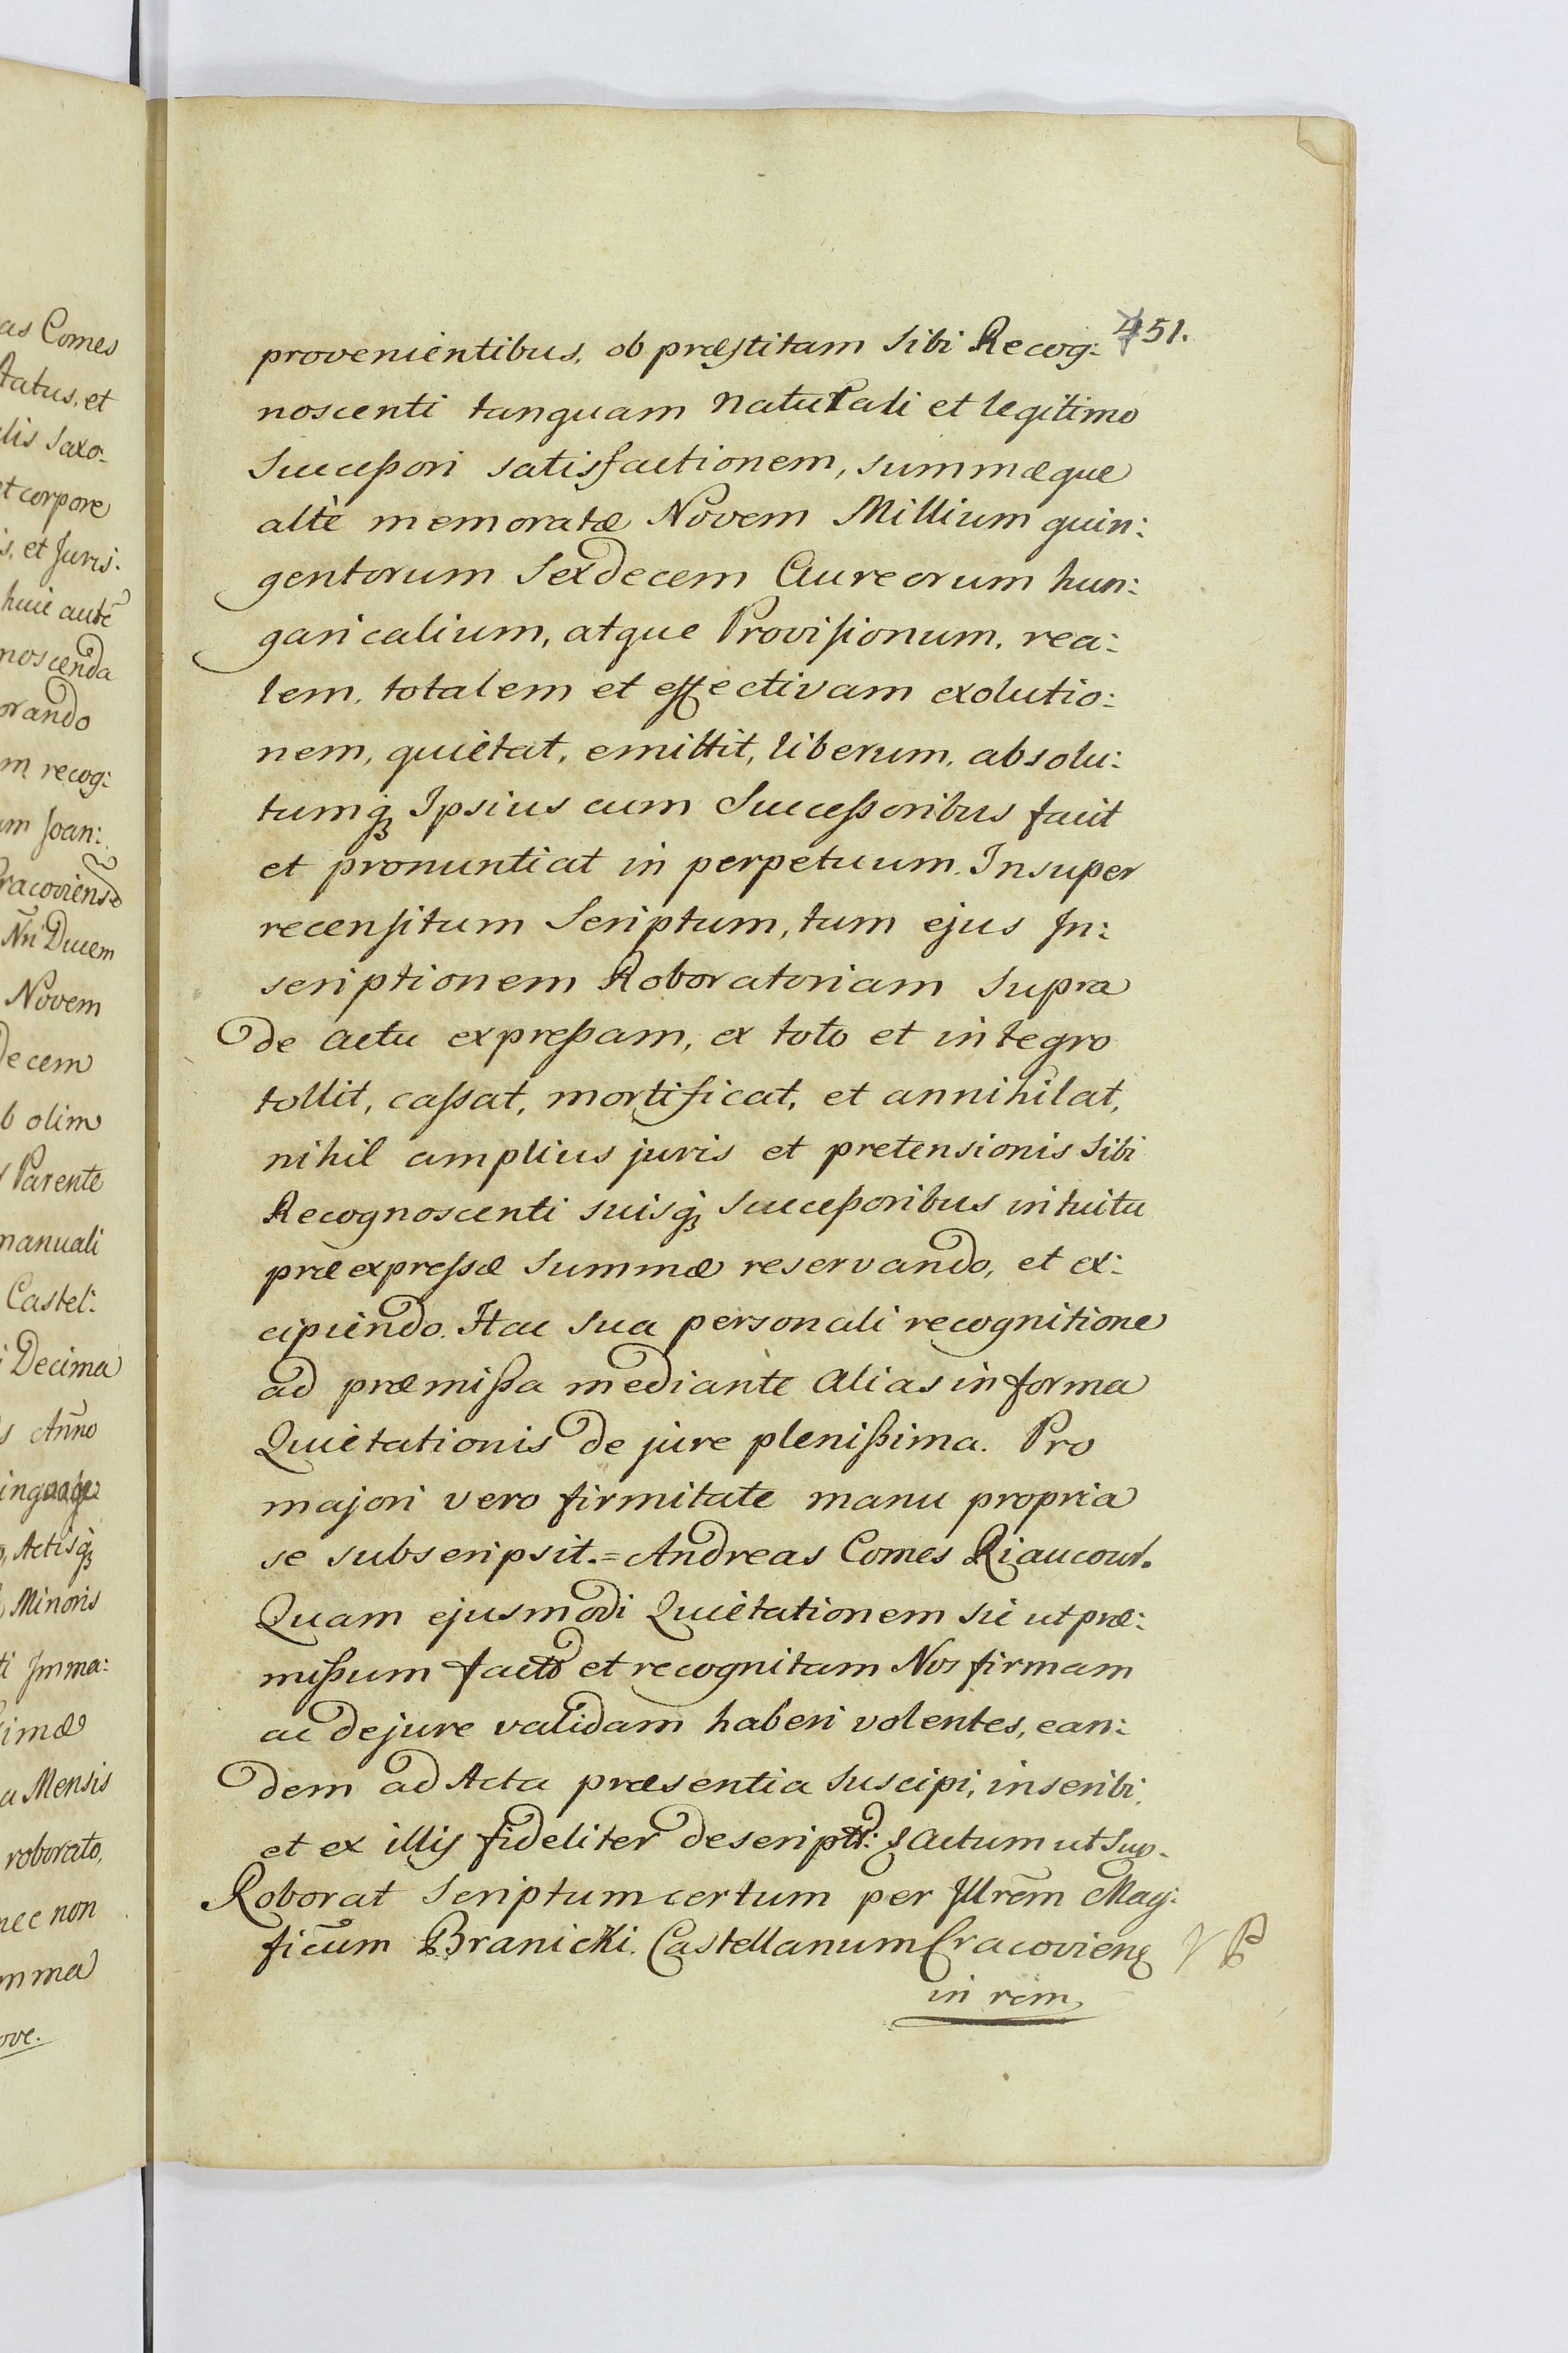 as Comes
tatus, et
lis Saxo-
et corpore
is, et Juris:
huic autē
noscenda
orando
m recog:
um Joan:
racoviens
Nri Ducem
Novem
Decem
b olim
Parente
manuali
Castel:
i Decima
s Anno
Actisq3
Minoris
ti Imma:
imæ
a Mensis
roborato,
nec non
mma
ove.
451.
provenientibus, ob præstitam Sibi Recog:
noscenti tanquam naturali et legitimo
Successori satisfactionem, summæque
altè memoratæ Novem Millium quin:
gentorum Sexdecem Aureorum hun:
garicalium, atque Provisionum, rea:
lem, totalem et effectivam exolutio:
nem, quietat, emittit, liberum, absolu:
tumq3 Ipsius cum Successoribus facit
et pronuntiat in perpetuum. Insuper
recensitum Scriptum, tum ejus In:
scriptionem Roboratoriam supra
de actu expressam, ex toto et integro
tollit, cassat, mortificat, et annihilat,
nihil amplius juris et pretensionis Sibi
Recognoscenti suisq3 Successoribus intuitu
præexpressæ Summæ reservando, et ex:
cipiendo. Hac sua personali recognitione
ad præmissa mediante alias in forma
Quietationis de jure plenissima. Pro
majori vero firmitate manu propria
se subscripsit.= Andreas Comes Riaucour.
Quam ejusmodi Quietationem sic ut præ:
missum facto et recognitam Nos firmam
ac de jure validam haberi volentes, ean:
dem ad Acta præsentia suscipi, inscribi,
et ex illis fideliter descript: & actum ut Sup.
Roborat Scriptum certum per Illrēm Mag:
ficum Branicki Castellanum Cracovien
in rem